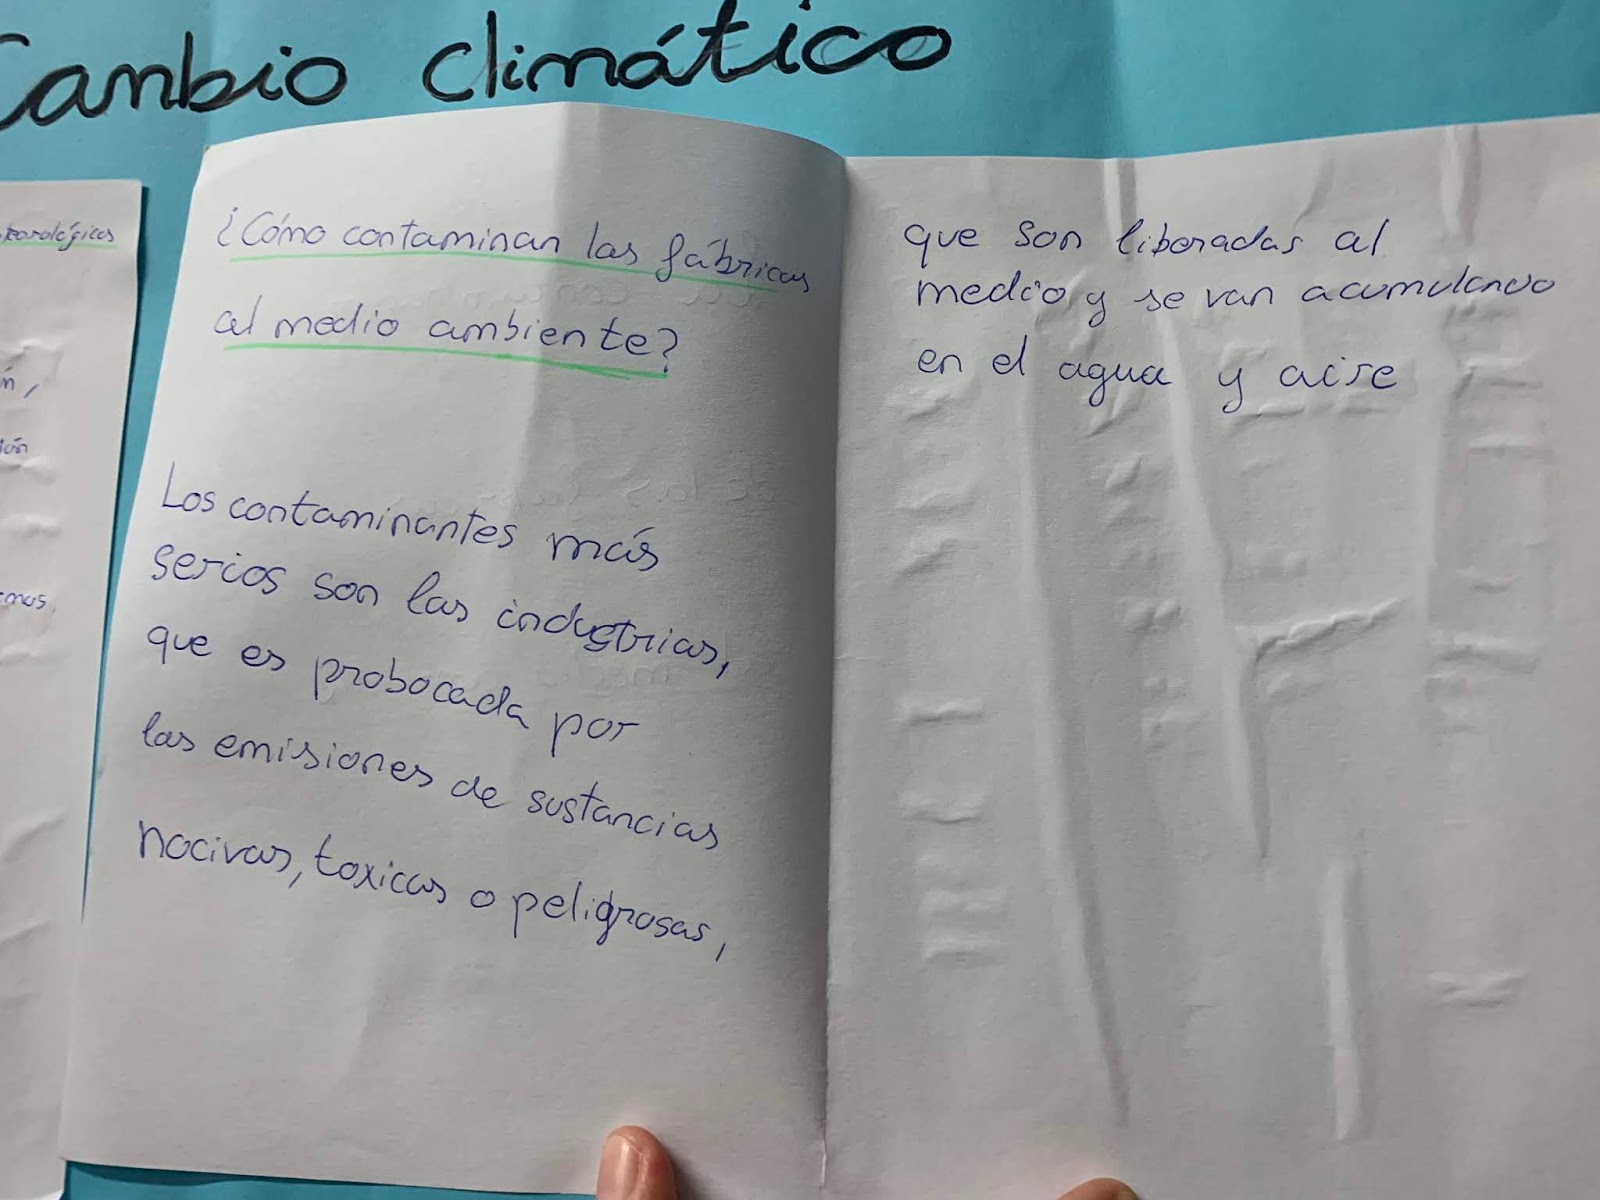 Cambio Climático
¿Cómo contaminan las fábricas
al medio ambiente?
Los contaminantes más
serios son las industrias,
que es probocada por
las emisiones de sustancias
nocivas, toxicas o peligrosas,
que son liberadas al
medio, y se van acumulando
en el agua y aire